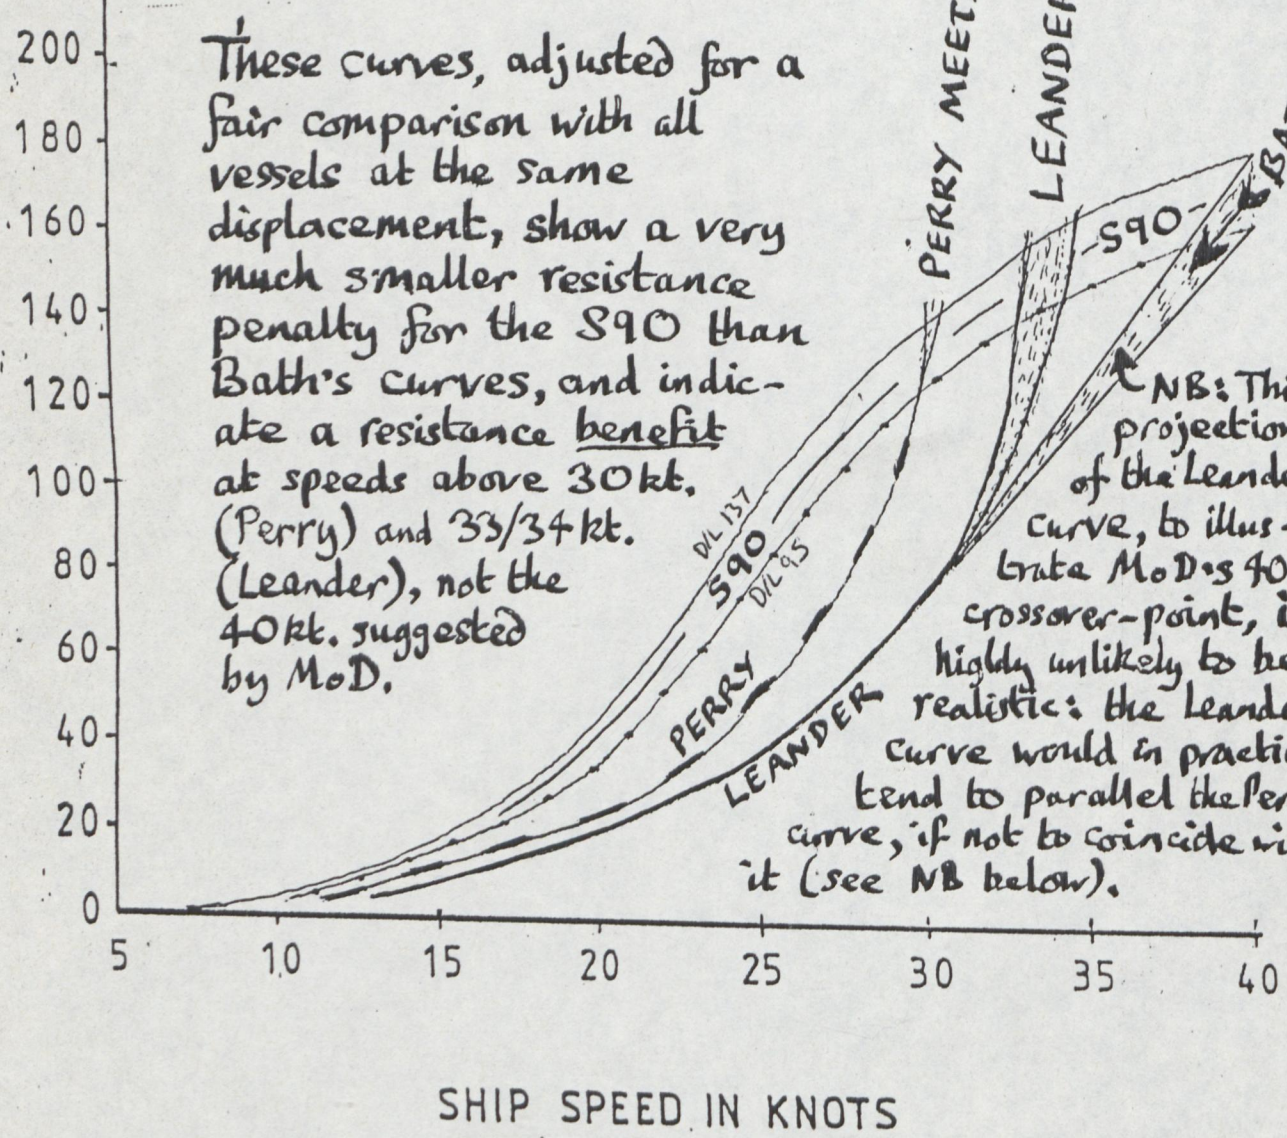 200
180
160
140
120
100
80
60
40
20
0
These curves, adjusted for a
fair comparison with all
vessels at the same
displacement, show a very
much smaller resistance
penalty for the S90 than
Bath's curves, and indic-
ate a resistance benefit
at speeds above 30kt.
(Perry) and 33/34kt.
(Leander), not the
40kt. suggested
by MoD.
PERRY MEET
LEANDER
S90
D/L 137
S90
D/L 95
PERRY
LEANDER
NB: Thi
projection
of the Leande
curve, to illus-
trate MoD's 40
crossover-point, i
highly unlikely to be
realistic: the Leande
curve would in practi
tend to parallel the Per
curve, if not to coincide wi
it (see NB below).
5 10 15 20 25 30 35 40
SHIP SPEED IN KNOTS